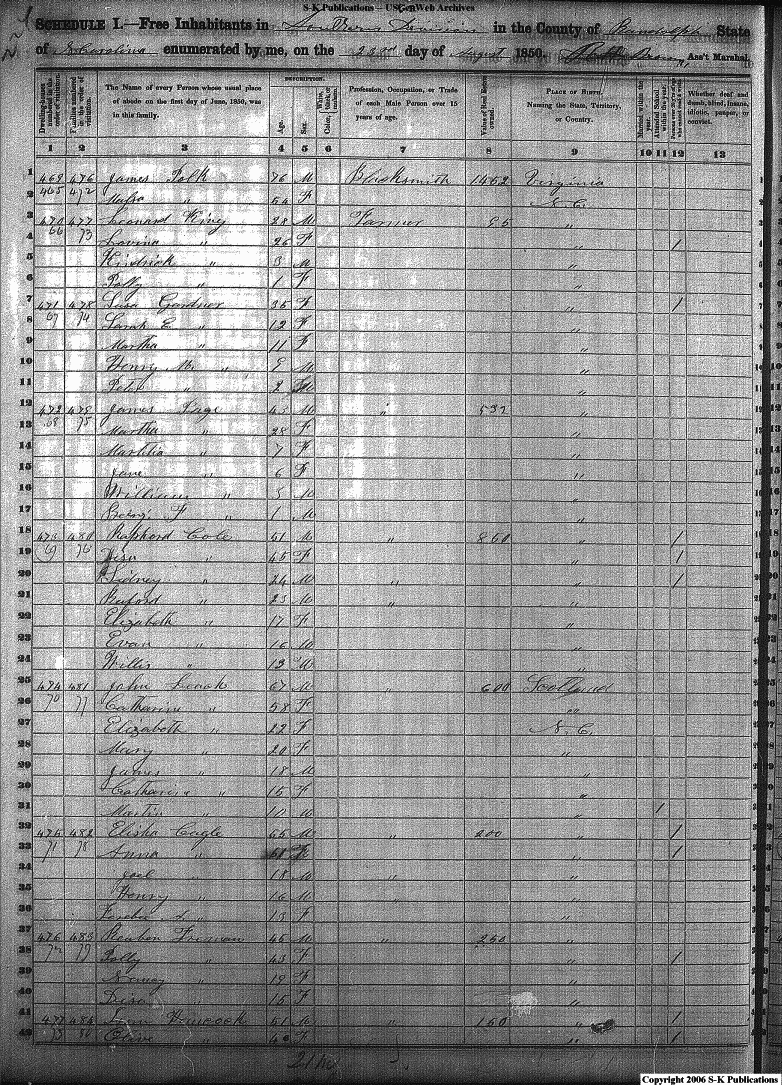 S-K Publications - USGenWeb Archives
SCHEDULE I.—Free Inhabitants in Southern Division in the County of Randolph State
of N Carolina enumerated by me, on the 23rd day of August 1850. Ass't Marshal.
DESCRIPTION.
Dwelling-houses numbered in the order of visitation. Families numbered in the order of visitation. The Name of every Person whose usual place of abode on the first day of June, 1850, was in this family. Age. Sex. White, black, or mulatto. Profession, Occupation, or Trade of each Male Person over 15 years of age. Value of Real Estate owned. PLACE OF BIRTH. Naming the State, Territory, or Country. Married within the year. Attended School within the year. Whether deaf and dumb, blind, insane, idiotic, pauper, or convict.
1 2 3 4 5 6 7 8 9 10 11 12 13
1 469 476 James Polk 76 M Blacksmith 1462 Virginia
465 472
2 " 54 F N. C.
3 470 477 Leonard 28 M Farmer "
66 73
4 Lovina " 26 F " /
5 " 3 M "
6 Polly " 1 F "
7 471 478 Gardner 35 F " /
67 74
8 Sarah E " 12 F "
9 Martha " 11 F "
10 Henry M. " 9 M "
11 Peter " 2 M "
12 472 479 James Page 43 M " 532 "
68 75
13 Martha " 28 F "
14 Martitia " 7 F "
15 Jane " 6 F "
16 William " 5 M "
17 F " 1 M "
18 473 480 Raphord Cole 51 M " 860 " /
69 76
19 " 45 F " /
20 Sidney " 24 M " " /
21 " 23 M " "
22 Elizabeth " 17 F "
23 Evan " 16 M "
24 Willis " 13 M "
25 474 481 John Leach 67 M " 600 Scotland
70 77
26 Catharine " 58 F "
27 Elizabeth " 22 F N. C.
28 Mary " 20 F "
29 James " 18 M "
30 Catharine " 15 F "
31 Martin " 10 M " /
32 475 482 Elisha Cagle 55 M " 200 " /
71 78
33 Anna " F " /
34 Joel " 18 M "
35 Henry " 16 M "
36 " 13 F "
37 476 483 Reuben Freeman 45 M " 250 "
72 79
38 Polly " 43 F " /
39 " 19 F "
40 " 15 F "
41 477 484 51 M " 150 " /
73 80
42 Olive " 40 F " /
Copyright 2006 S-K Publications